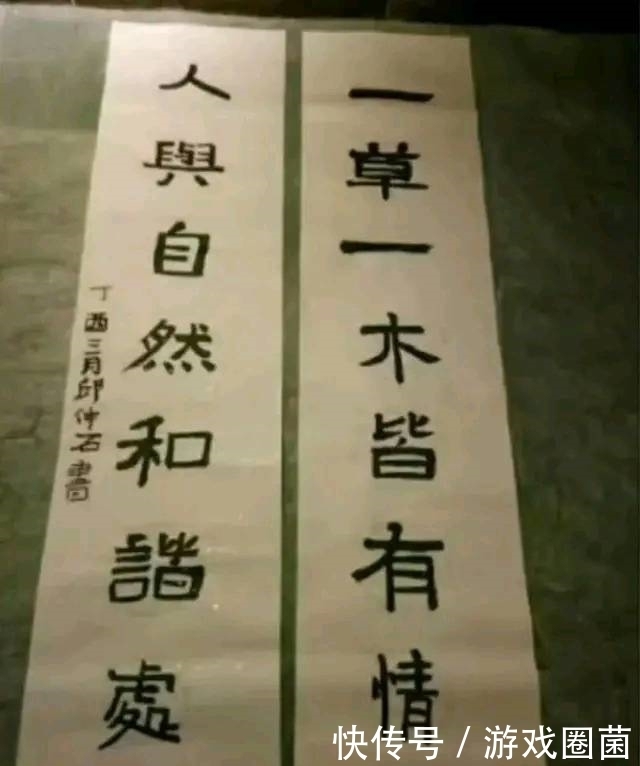 一草一木皆有情
人與自然和諧處
丁酉三月邱仲石書
快传号／游戏圈菌